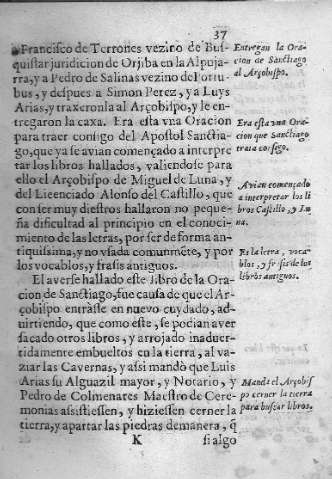 37
Francisco de Terrones vezino de Bus-
quistar juridicion de Orjiba en la Alpuja-
rra, y a Pedro de Salinas vezino de Portu
bus, y despues a Simon Perez, ya Luys
Arias, y traxeronla al Arçobispo, y le en-
tregaron la caxa. Era esta vna Oracion
para traer consigo del Apostol Sanctia-
go, que ya se avian començado a interpre
tar los libros hallados, valiendose para
ello el Arçobispo de Miguel de Luna, y
del Licenciado Alonso del Castillo, que
con ser muy diestros hallaron no peque-
ña dificultad al principio en el conoci-
miento de las letras, por ser de forma an-
tiquissima, y no vsada comunmẽte, y por
los vocablos, y frasis antiguos.
El averse hallado este libro de la Ora
cion de Sanctiago, fue causa de que el Ar-
çobispo entrasse en nuevo cuydado, ad-
uirtiendo, que como este, se podian aver
sacado otros libros, y arrojado inaduer-
tidamente embueltos en la tierra, al va-
ziar las Cavernas, y assi mandò que Luis
Arias su Alguazil mayor, y Notario, y
Pedro de Colmenares Maestro de Cere-
monias assistiessen, y hiziessen cerner la
tierra, y apartar las piedras demanera, q̃
K
si algo
Entregan la Ora-
cion de Sanctiago
al Arçobispo.
Era esta vna Ora-
cion que Sanctiago
traia consigo.
Avian començado
a interpretar los li
bros Castillo, y Lu
na.
Es la letra, voca-
blos, y frasis de los
libros antiguos.
Manda el Arçobis
po cerner la tierra
para buscar libros.